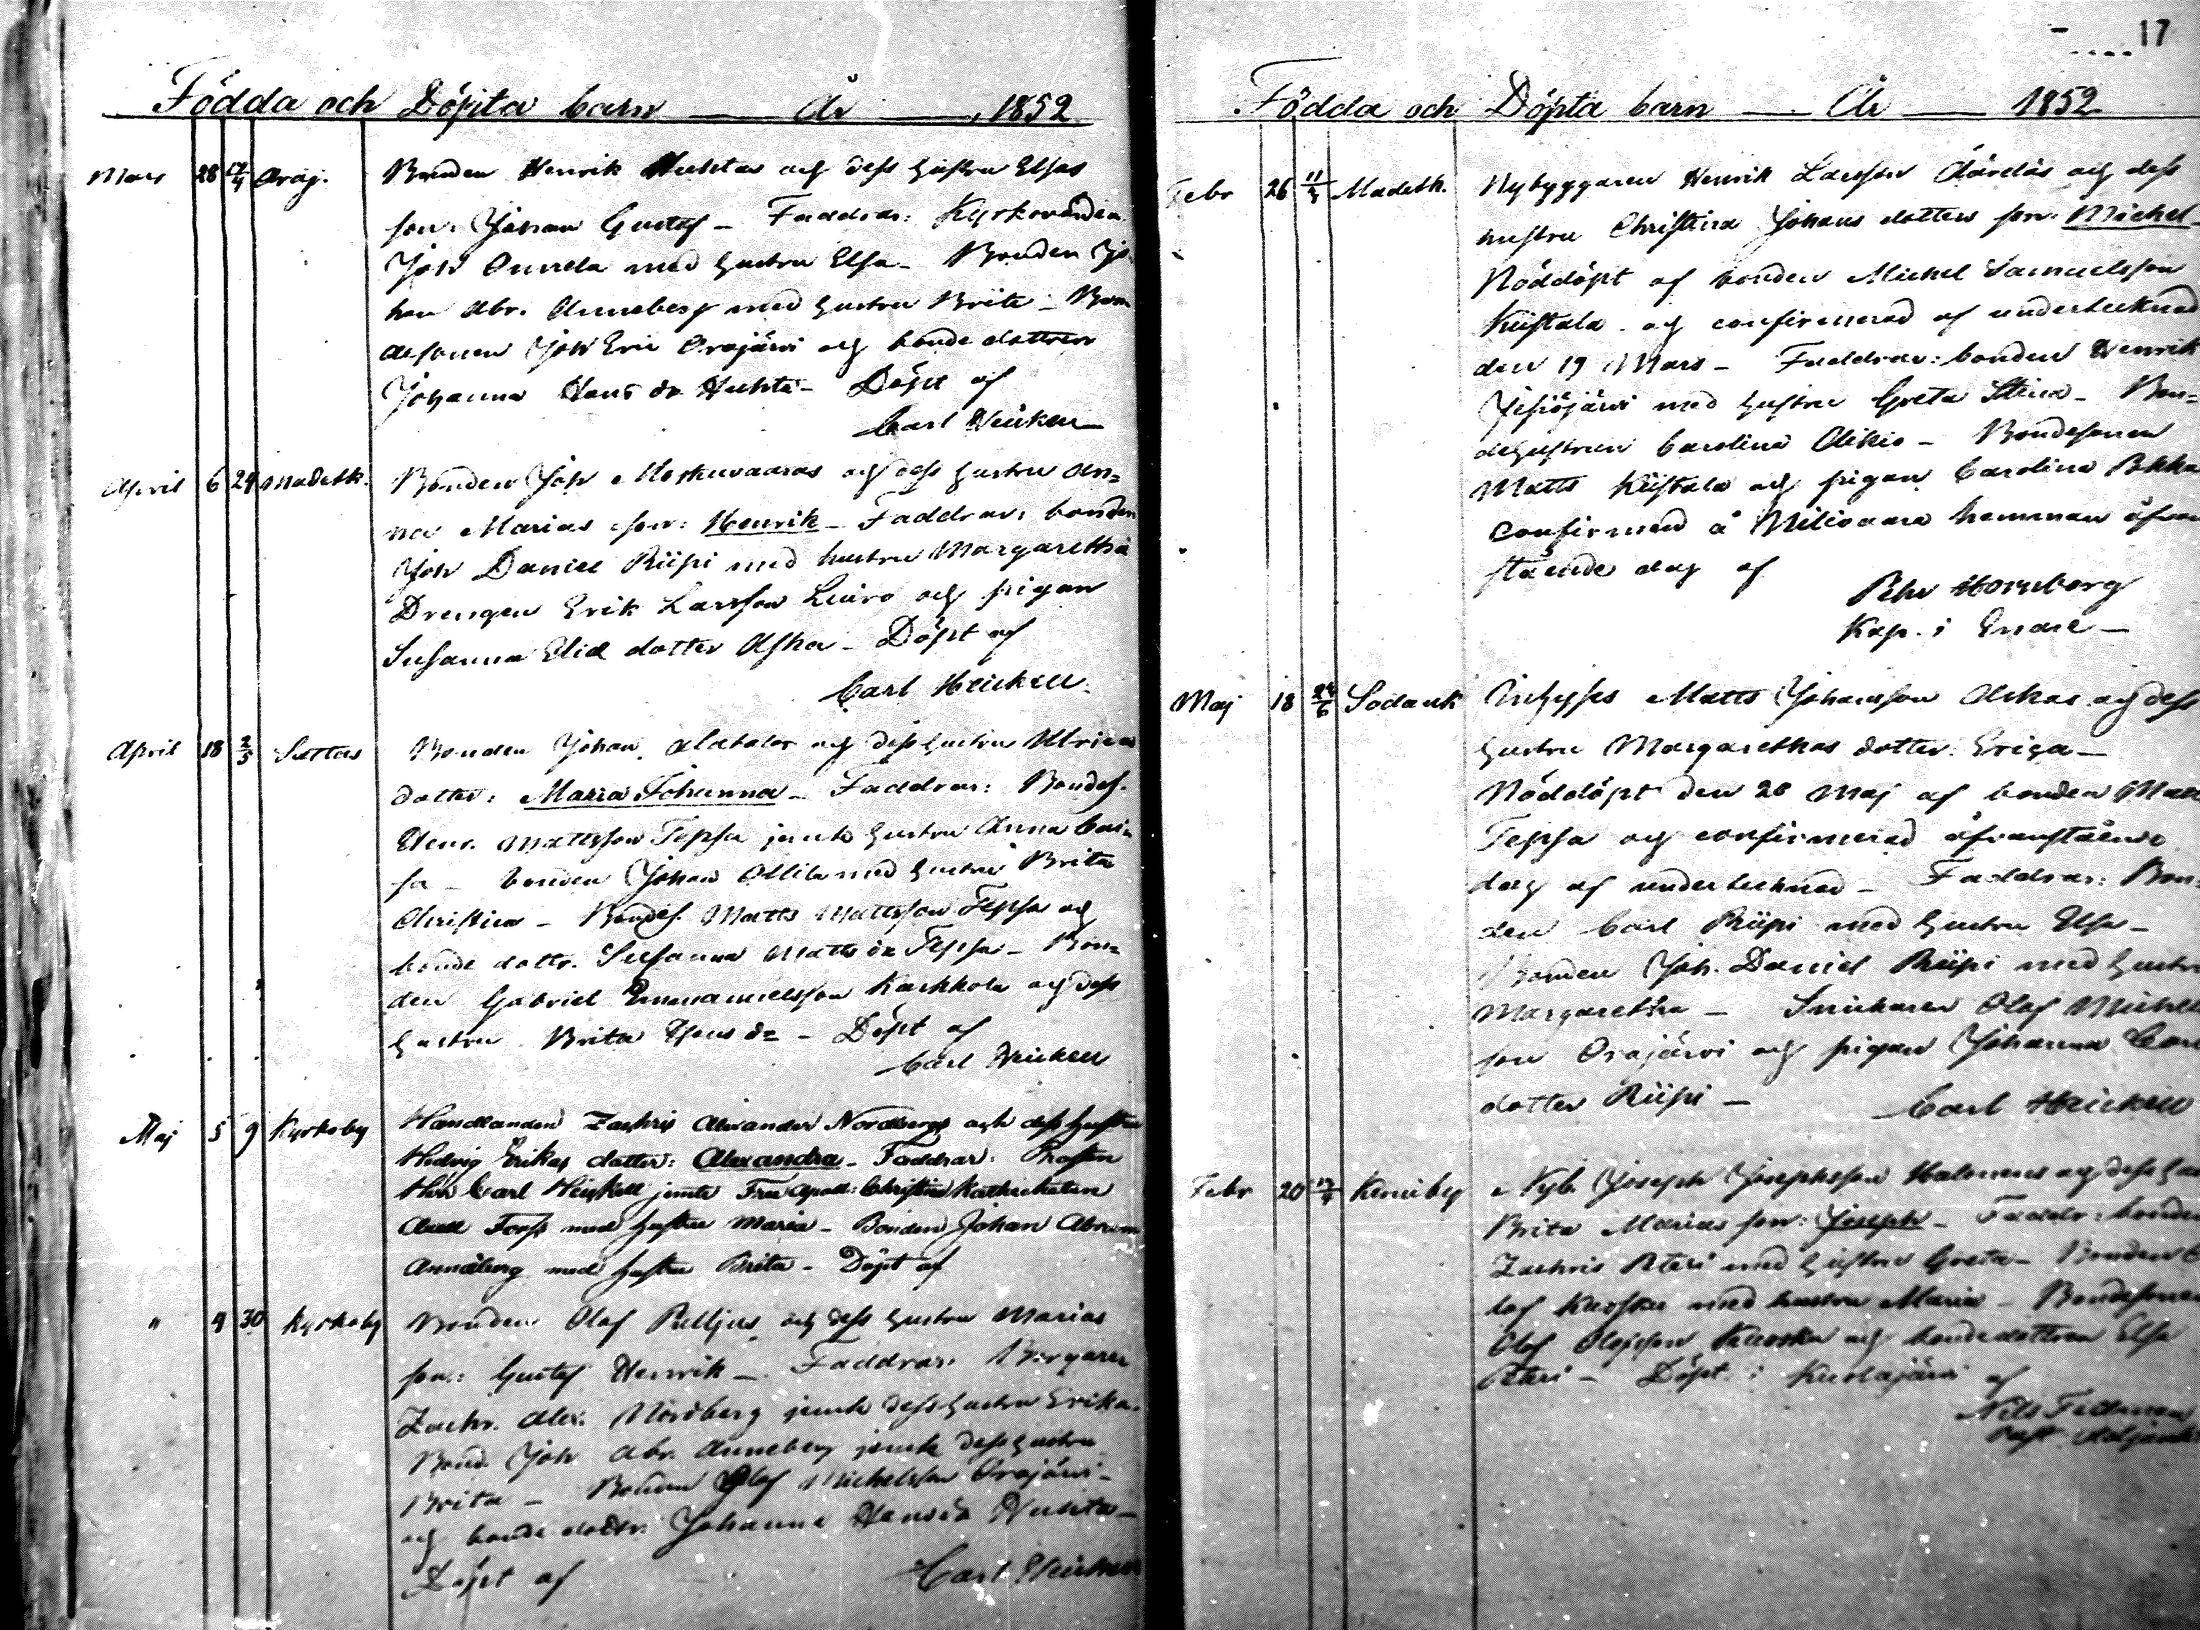 Födda och Döpta barn — År — 1852
Mars 28 Oraj. Bonden Henrik Huhtas och dess hustru Elsas
son: Johan Gustaf — Faddrar: Kyrkovärden
Joh Onnela med hustru Elsa — Bonden Jo
han Abr. Anneberg med hustru Brita — Bon
desonen Joh Eric Orajärvi och bonde dottren
Johanna Hans dr Huhta — Döpt af
Carl Heickell
April 6 24 Madetk. Bonden Joh Moskuvaaras och dess hustru An=
na Marias son: Henrik — Faddrar: bonden
Joh Daniel Riipi med hustru Margaretha
Drengen Erik Larsson Luiro och pigan
Susanna Elia dotter Aska — Döpt af
Carl Heickell
April 18 2/5 Sattas Bonden Johan Alatalos och dess hustru Ulricas
dotter: Maria Johanna — Faddrar: Bondes.
Henr. Mattsson Tepsa jemte hustru Anna Cai=
sa — bonden Johan Ollila med hustru Brita
Christina — Bondes. Matts Mattsson Tepsa och
bonde dottr. Susanna Matts dr Tepsa — Bon=
den Gabriel Emmanuelsson Karkkola och dess
hustru Brita Hans dr — Döpt af
Carl Heickell
Maj 5 9 Kyrkoby Handlanden Zachris Alexander Nordbergs och dess hustru
Hedvig Erikas dotter: Alexandra — Faddrar: Prosten
Herr Carl Heickell jemte Fru Apoll: Christina Kathecheten
Axell Forss med hustru Maria — Bonden Johan Abram
Anneberg med hustru Brita — Döpt af
" 9 30 Kyrkoby Bonden Olof Pelljus och dess hustru Marias
son: Gustaf Henrik — Faddrar: Borgaren
Zachr. Alex. Nordberg jemte dess hustru Erika.
Bond. Joh Abr. Anneberg jemte dess hustru
Brita — Bonden Olof Michelsson Orajärvi —
och bonde dottr. Johanna Hans dr Huhta —
Döpt af Carl Heickell
17
Födda och Döpta barn — År — 1852
Febr 26 Madetk. Nybyggaren Henrik Larsson och dess
hustru Christina Johans dotters son: Michel
Nöddöpt af bonden Michel Samuelsson
Kiistala och confirmerad af undertecknad
den 19 Mars — Faddrar: bonden Henrik
Jesiöjärvi med hustru Greta Stina — Bon=
dehustrun Carolina Alikio — Bondesonen
Matts Kiistala och pigan Carolina
confirmerad å hemman öfvan
stående dag af
Pehr Hornborg
Kap. i Enare —
Maj 18 24/6 Sodank Inhyses Matts Johansson Askas och dess
hustru Margarethas dotter: Eriga —
Nöddöpt den 20 Maj af bonden
Tepsa och confirmerad öfvanstående
dag af undertecknad — Faddrar: Bon=
den Carl Riipi med hustru Elsa —
Bonden Joh. Daniel Riipi med hustru
Margaretha — Snickaren Olof Michels
son Orajärvi och pigan Johanna Carl
dotter Riipi — Carl Heickell
Febr 20 Kemiby Nyb. Joseph Josephsson Halonens och dess hu
Brita Marias son: Joseph — Faddr: bonden
Zachris Peteri med hustru Greta — Bonden O
lof Kuoska med hustru Maria — Bondesonen
Olof Olofsson Kuoska och bondedottren Elsa
Peteri — Döpt i Kuolajärvi af
Nils Fellman
Past. Adjunkt